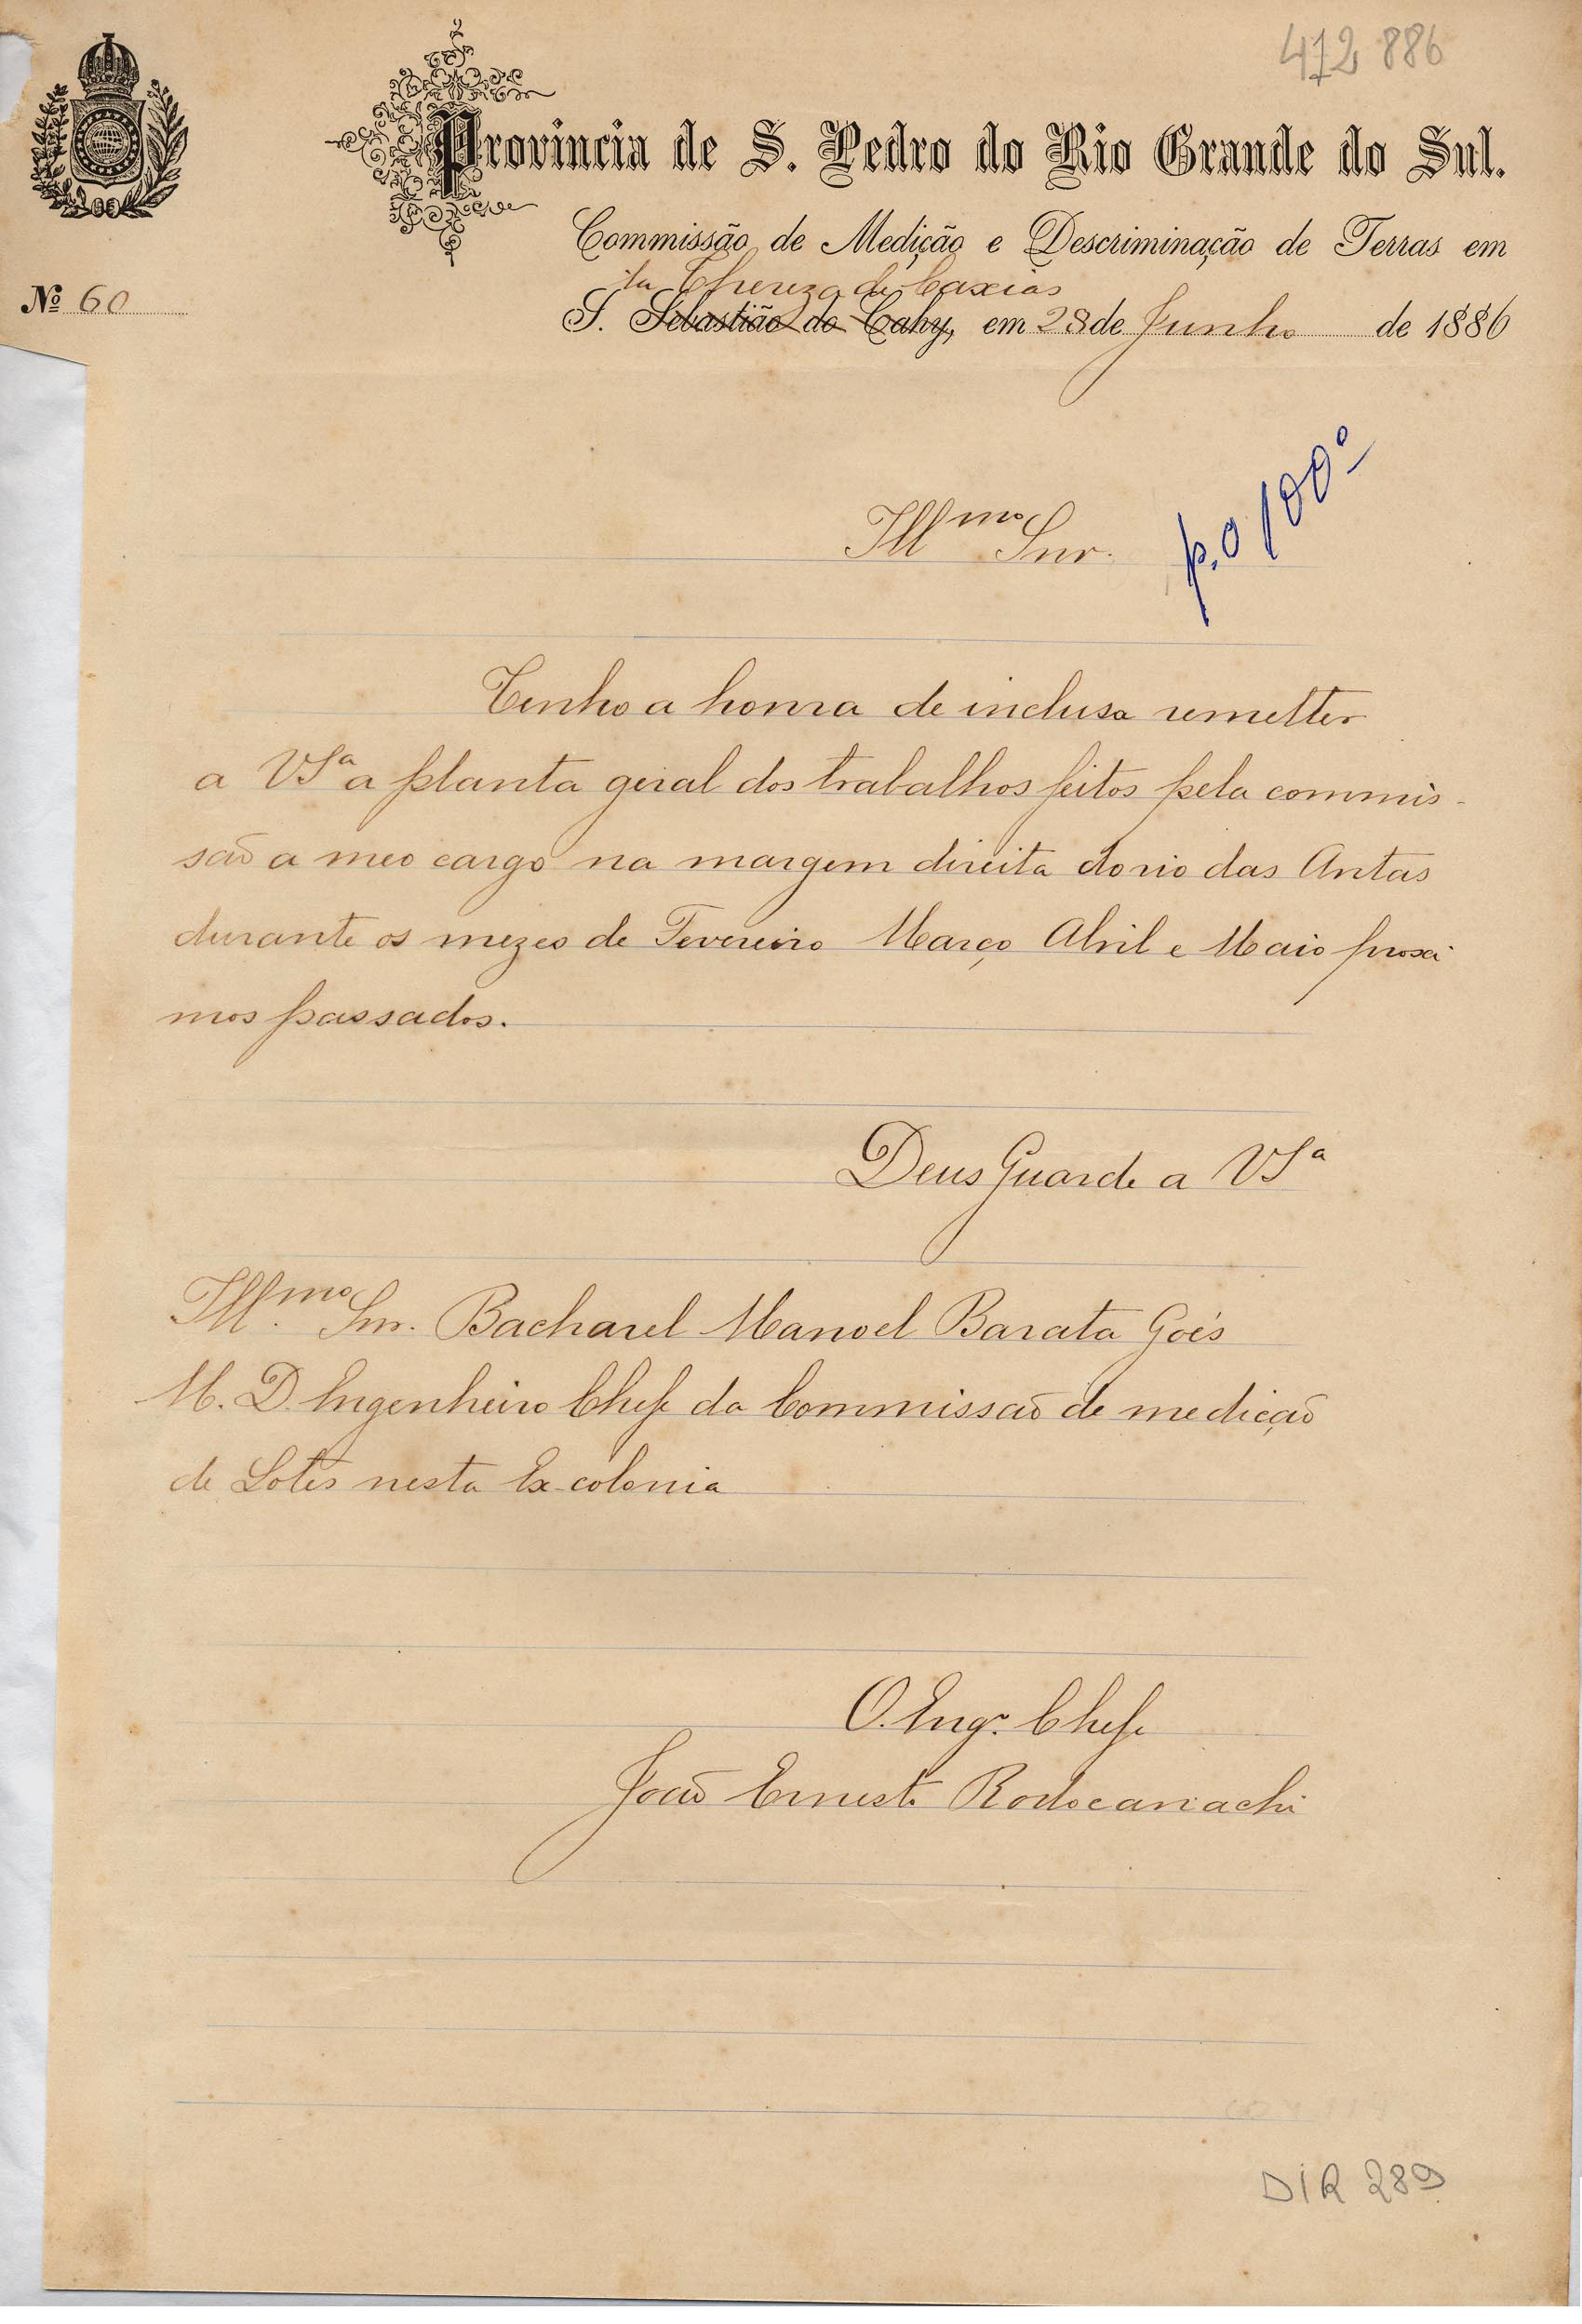 412 886
Provincia de S. Pedro do Rio Grande do Sul.
Commissão de Medição e Descriminação de Terras em
ta Thereza de Caxias
Nº 60
S. Sebastião do Cahy, em 28 de Junho de 1886
p. 0 100º
Illmo Snr.
Tenho a honra de inclusa remetter
a VSª a planta geral dos trabalhos feitos pela commis-
saõ a meo cargo na margem direita do rio das Antas
durante os mezes de Fevereiro Março Abril e Maio proxi
mos passados.
Deus Guarde a VSª
Ill.mo Snr. Bacharel Manoel Barata Goés
M. D. Engenheiro Chefe da Commissaõ de mediçaõ
de Lotes nesta Ex-colonia
O. Engr. Chefe
Joaõ Ernesto Rodocanachi
DIR 289